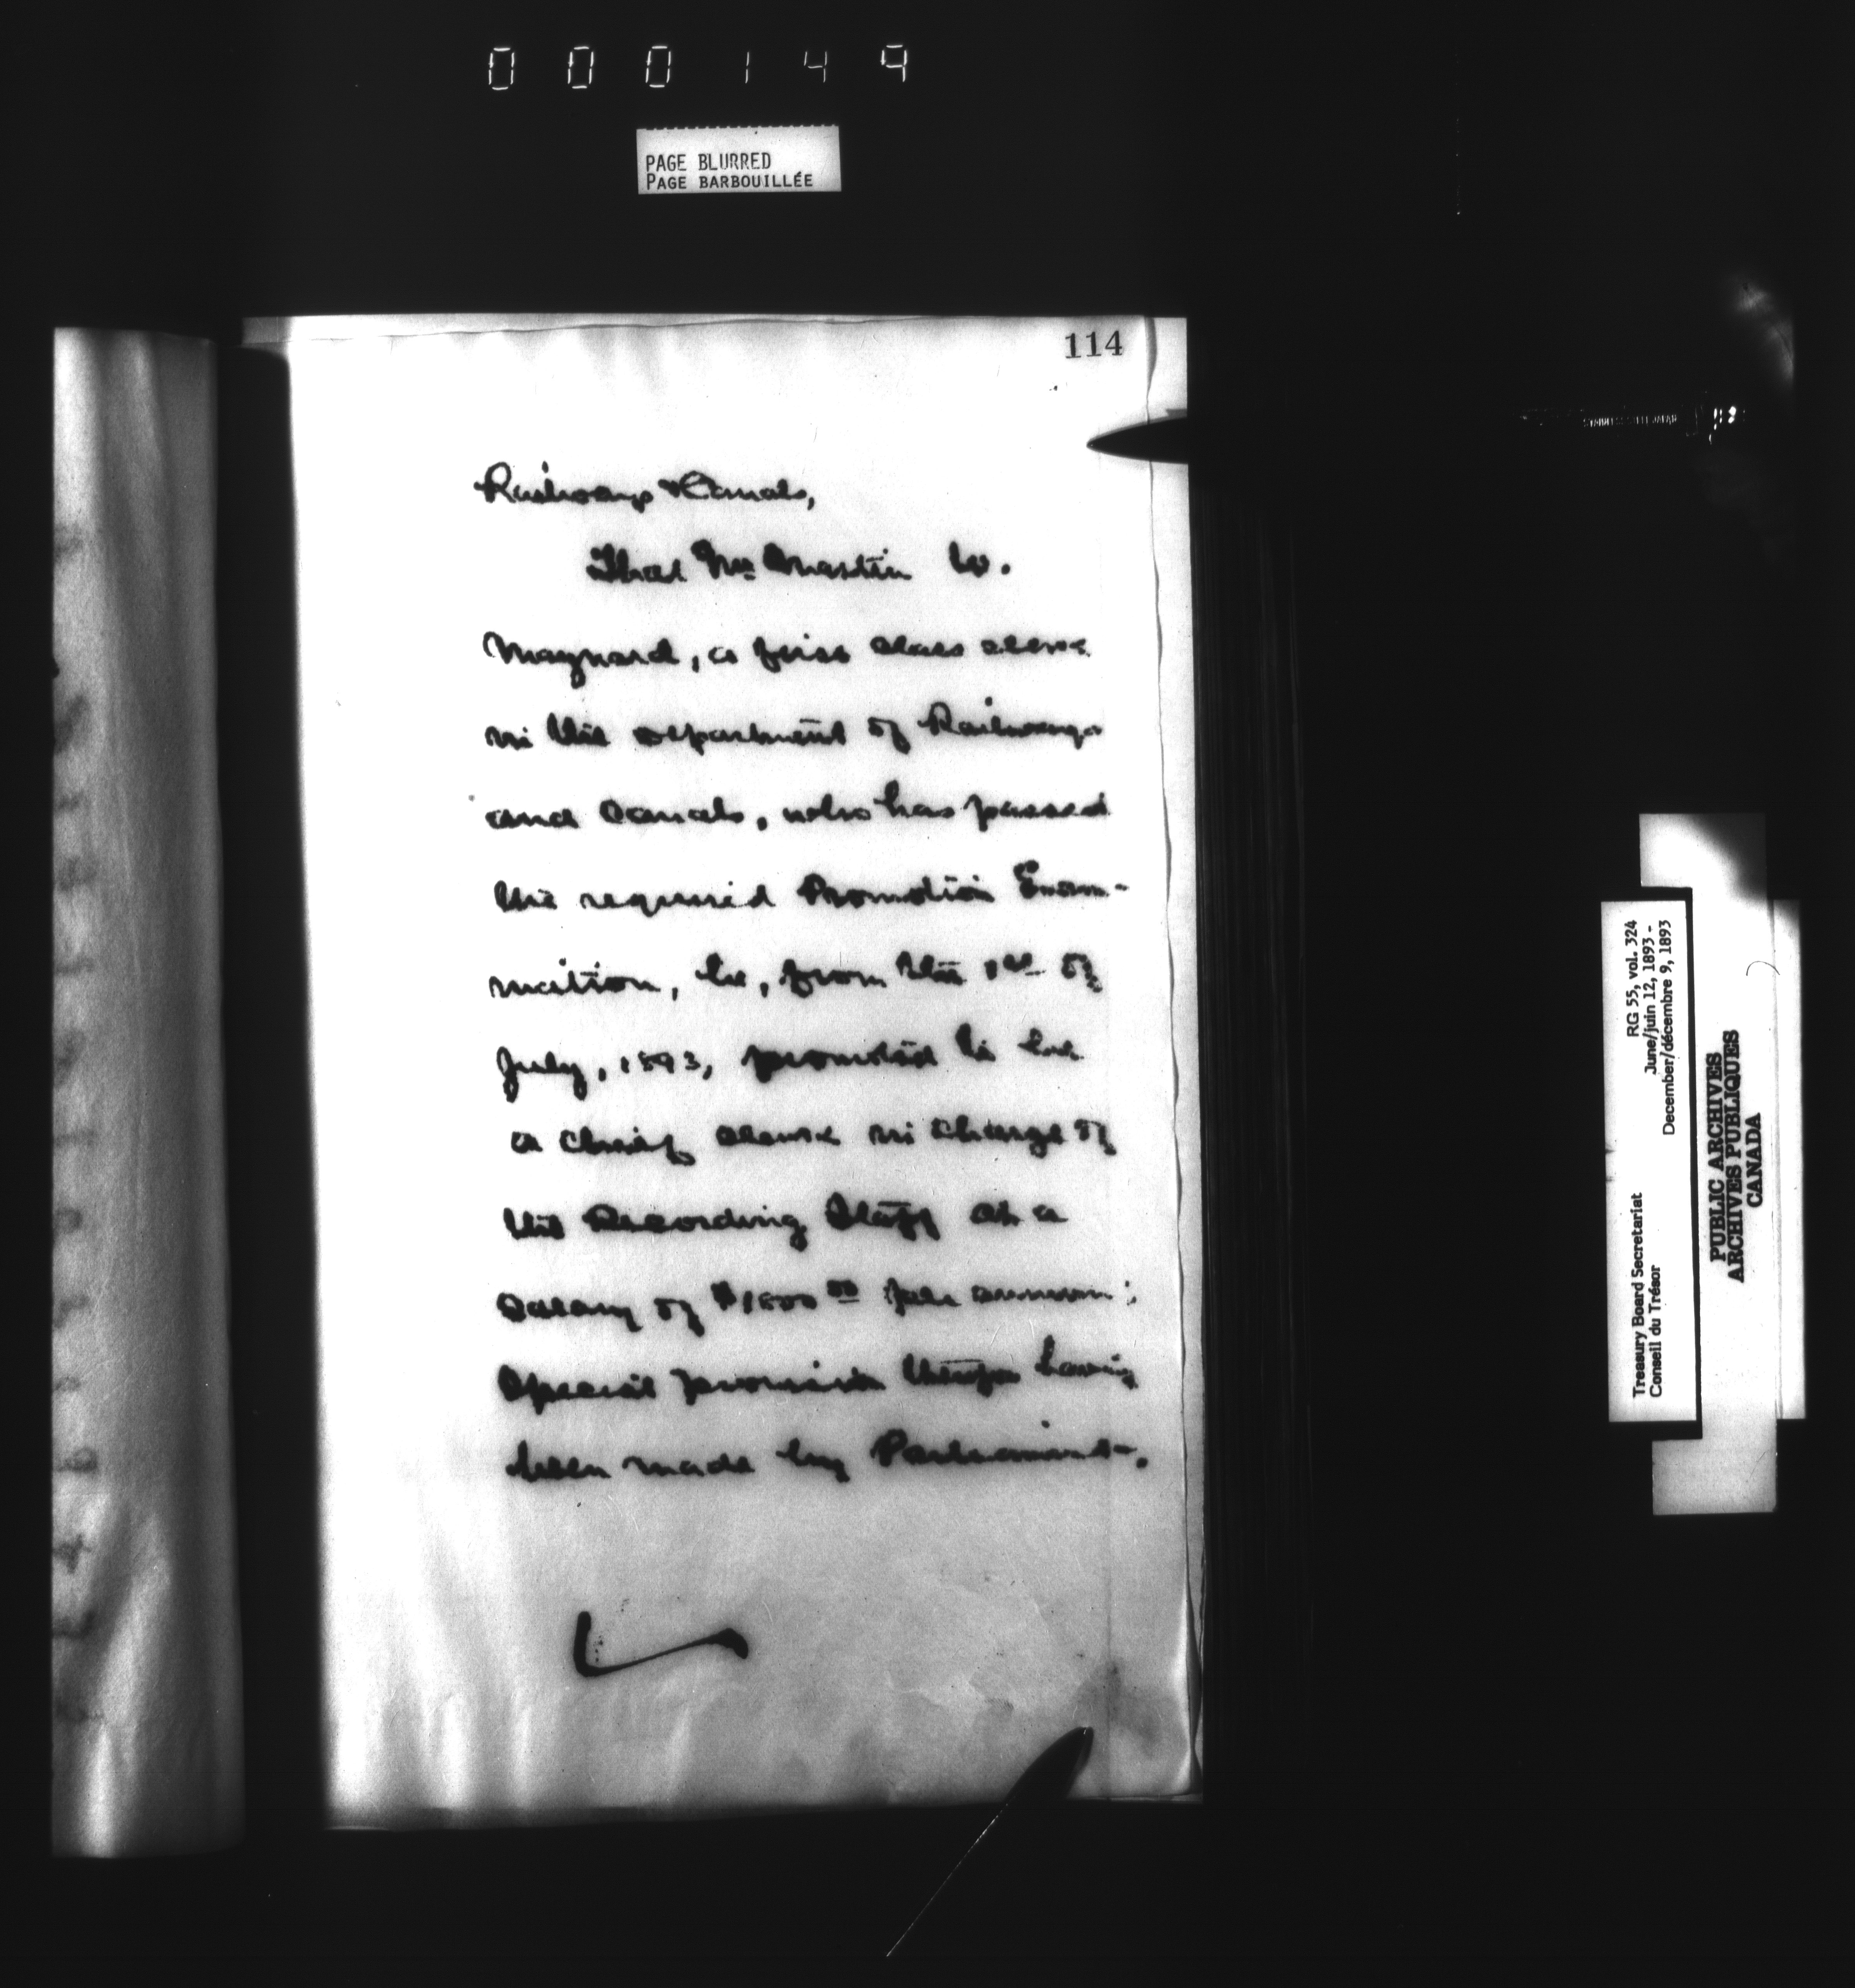 000149
PAGE BLURRED
PAGE BARBOUILLÉE
114
Railways & Canals,
That Mr. Martin W.
Maynard, a first class clerk
in the department of Railways
and Canals, who has passed
the required Promotion Exam-
ination, be, from the 1st of
July, 1893, promoted to be
a chief clerk in charge of
the Recording Staff at a
Salary of $1800 00 per annum;
Special provision therefor having
been made by Parliament.
RG 55, vol. 324
June/juin 12, 1893 -
December/décembre 9, 1893
Treasury Board Secretariat
Conseil du Trésor
PUBLIC ARCHIVES
ARCHIVES PUBLIQUES
CANADA